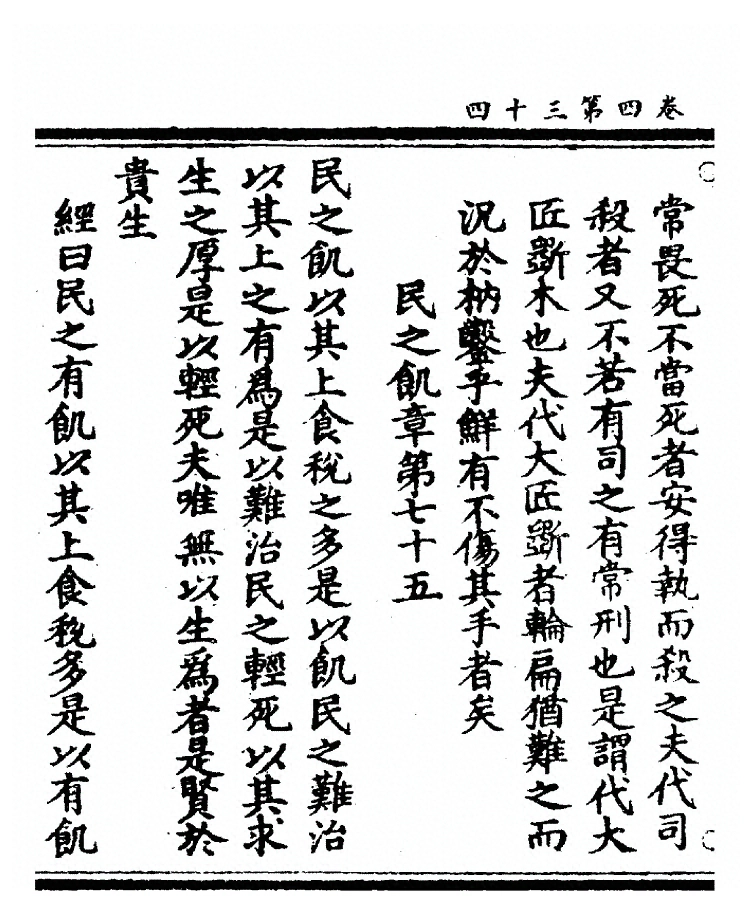 卷四第三十四
常畏死不當死者安得執而殺之夫代司
殺者又不若有司之有常刑也是謂代大
匠斲木也夫代大匠斲者輪扁猶難之而
況於枘鑿乎鮮有不傷其手者矣
民之飢章第七十五
民之飢以其上食稅之多是以飢民之難治
以其上之有爲是以難治民之輕死以其求
生之厚是以輕死夫唯無以生爲者是賢於
貴生
經曰民之有飢以其上食稅多是以有飢